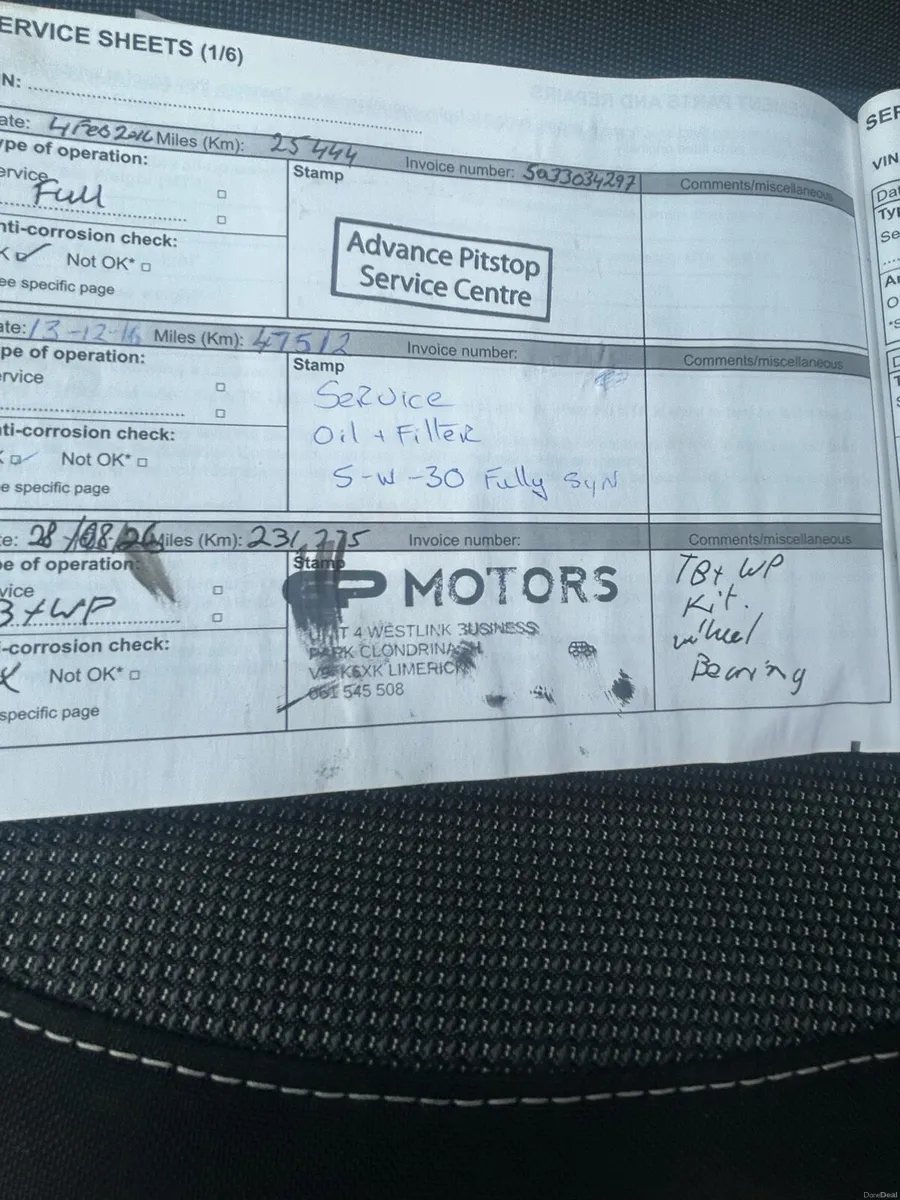 ERVICE SHEETS (1/6)
N:
ate: 4 Feb 2016 Miles (Km): 25444 Invoice number: Sa33034297 Comments/miscellaneous
ype of operation:
ervice
Full
Stamp
Advance Pitstop
Service Centre
nti-corrosion check:
K Not OK*
ee specific page
ate: 13-12-16 Miles (Km): 47512 Invoice number: Comments/miscellaneous
pe of operation:
rvice
Stamp
Service
Oil + Filter
5-W-30 Fully Syn
ti-corrosion check:
K Not OK*
e specific page
te: 28/08/26 Miles (Km): 231,775 Invoice number: Comments/miscellaneous
e of operation:
vice
B+WP
Stamp
P MOTORS
UNIT 4 WESTLINK BUSINESS
PARK CLONDRINAGH
LIMERICK
061 545 508
TB+ WP
Kit.
wheel
Bearing
-corrosion check:
Not OK*
specific page
SER
VIN
Da
Ty
Se
A
O
*S
D
T
S
DoneDeal